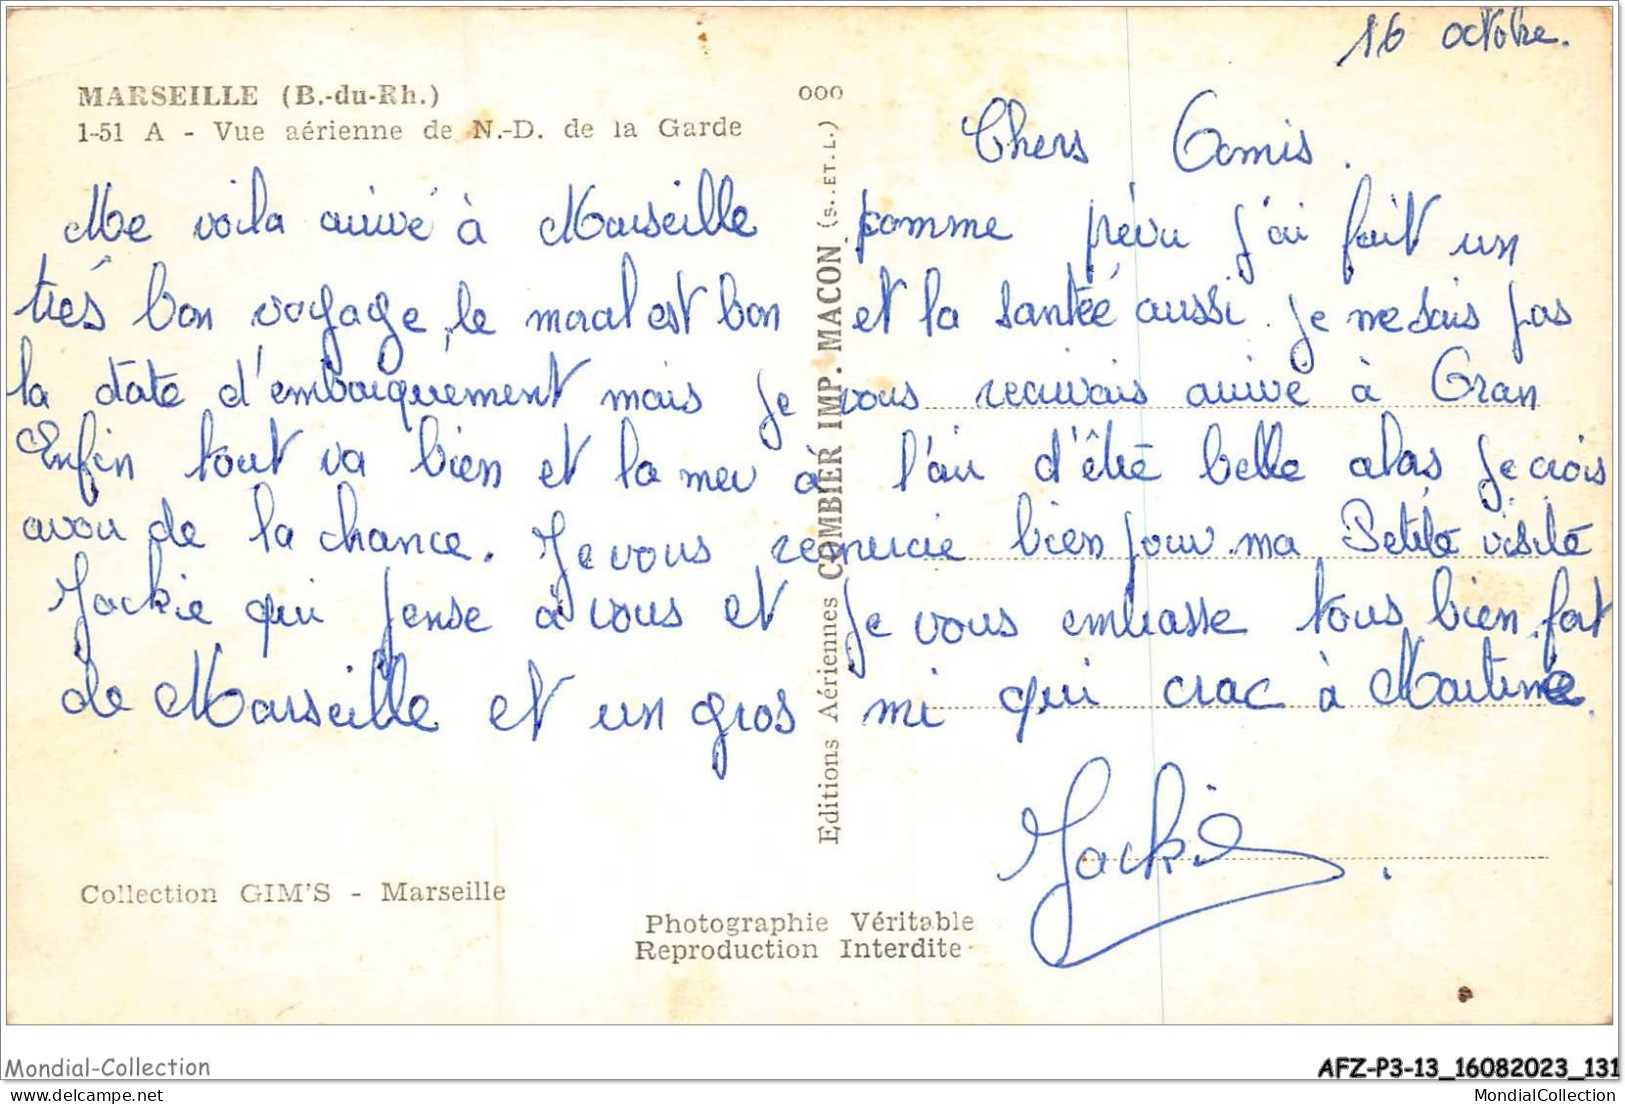 16 octobre.
MARSEILLE (B.-du-Rh.)
1-51 A - Vue aérienne de N.-D. de la Garde
000
Chers Gamis.
Me voila arrivé à Marseille comme prévu j'ai fait un
trés bon voyage, le moral est bon et la santée aussi. je ne sais pas
la date d'embarquement mais je vous recrivais arrivé à Oran
Enfin tout va bien et la mer à l'air d'être belle alas je crois
avoir de la chance. Je vous remercie bien pour ma Petite visite
Jackie qui pense à vous et je vous embrasse tous bien fort
de Marseille et un gros mi qui crac à Martine.
Jackie.
Editions Aériennes COMBIER IMP. MACON (S..ET.L.)
Collection GIM'S - Marseille
Photographie Véritable
Reproduction Interdite
Mondial-Collection
AFZ-P3-13_16082023_131
MondialCollection